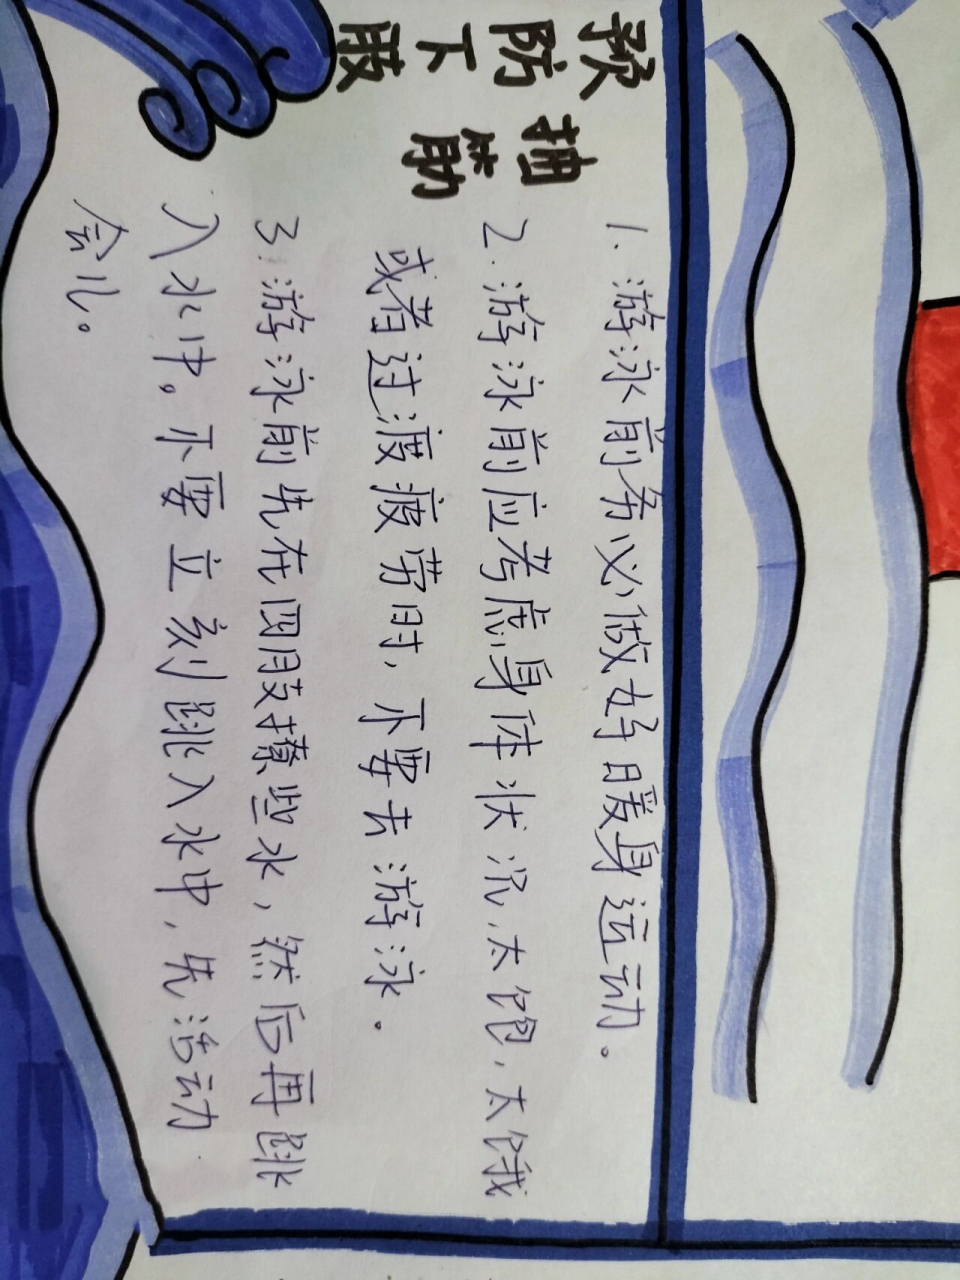 预防下肢
抽筋
1. 游泳前务必做好暖身运动。
2. 游泳前应考虑身体状况,太饱,太饿
或者过渡疲劳时,不要去游泳.
3. 游泳前先在四肢撩些水,然后再跳
入水中。不要立刻跳入水中,先活动
会儿。